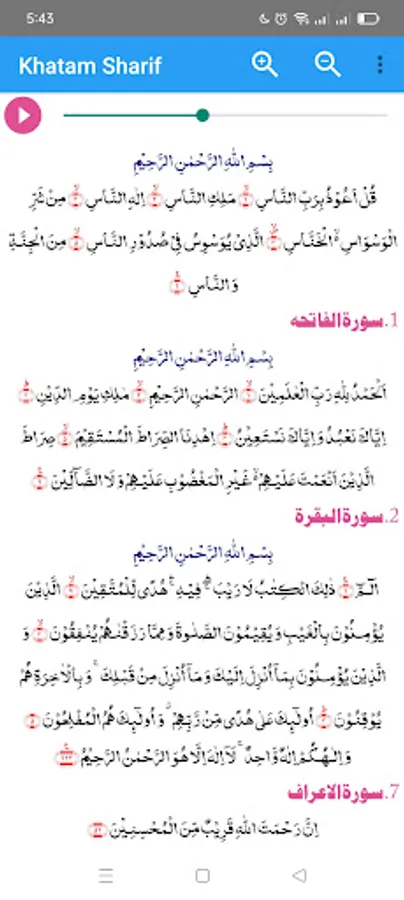 5:43
Khatam Sharif
بِسْمِ اللّٰهِ الرَّحْمٰنِ الرَّحِيْمِ
قُلْ اَعُوْذُ بِرَبِّ النَّاسِ ۙ﴿۱﴾ مَلِكِ النَّاسِ ۙ﴿۲﴾ اِلٰهِ النَّاسِ ۙ﴿۳﴾ مِنْ شَرِّ
الْوَسْوَاسِ ۙ الْخَنَّاسِ ۙ﴿۴﴾ الَّذِىْ يُوَسْوِسُ فِىْ صُدُوْرِ النَّاسِ ۙ﴿۵﴾ مِنَ الْجِنَّةِ
وَ النَّاسِ ﴿۶﴾
1. سورة الفاتحه
بِسْمِ اللّٰهِ الرَّحْمٰنِ الرَّحِيْمِ
اَلْحَمْدُ لِلّٰهِ رَبِّ الْعٰلَمِيْنَ ۙ﴿۱﴾ الرَّحْمٰنِ الرَّحِيْمِ ۙ﴿۲﴾ مٰلِكِ يَوْمِ الدِّيْنِ ؕ﴿۳﴾
اِيَّاكَ نَعْبُدُ وَ اِيَّاكَ نَسْتَعِيْنُ ؕ﴿۴﴾ اِهْدِنَا الصِّرَاطَ الْمُسْتَقِيْمَ ۙ﴿۵﴾ صِرَاطَ
الَّذِيْنَ اَنْعَمْتَ عَلَيْهِمْ ۙ غَيْرِ الْمَغْضُوْبِ عَلَيْهِمْ وَ لَا الضَّآلِّيْنَ ﴿۷﴾
2. سورة البقرة
بِسْمِ اللّٰهِ الرَّحْمٰنِ الرَّحِيْمِ
الٓـمّٓ ۚ﴿۱﴾ ذٰلِكَ الْكِتٰبُ لَا رَيْبَ ۛۚ فِيْهِ ۛۚ هُدًى لِّلْمُتَّقِيْنَ ۙ﴿۲﴾ الَّذِيْنَ
يُؤْمِنُوْنَ بِالْغَيْبِ وَ يُقِيْمُوْنَ الصَّلٰوةَ وَ مِمَّا رَزَقْنٰهُمْ يُنْفِقُوْنَ ۙ﴿۳﴾ وَ
الَّذِيْنَ يُؤْمِنُوْنَ بِمَاۤ اُنْزِلَ اِلَيْكَ وَ مَاۤ اُنْزِلَ مِنْ قَبْلِكَ ۚ وَ بِالْاٰخِرَةِ هُمْ
يُوْقِنُوْنَ ؕ﴿۴﴾ اُولٰٓئِكَ عَلٰى هُدًى مِّنْ رَّبِّهِمْ ۗ وَ اُولٰٓئِكَ هُمُ الْمُفْلِحُوْنَ ﴿۵﴾
وَ اِلٰـهُكُمْ اِلٰهٌ وَّاحِدٌ ۚ لَاۤ اِلٰهَ اِلَّا هُوَ الرَّحْمٰنُ الرَّحِيْمُ ﴿۱۶۳﴾
7. سورة الاعراف
اِنَّ رَحْمَتَ اللّٰهِ قَرِيْبٌ مِّنَ الْمُحْسِنِيْنَ ﴿۵۶﴾